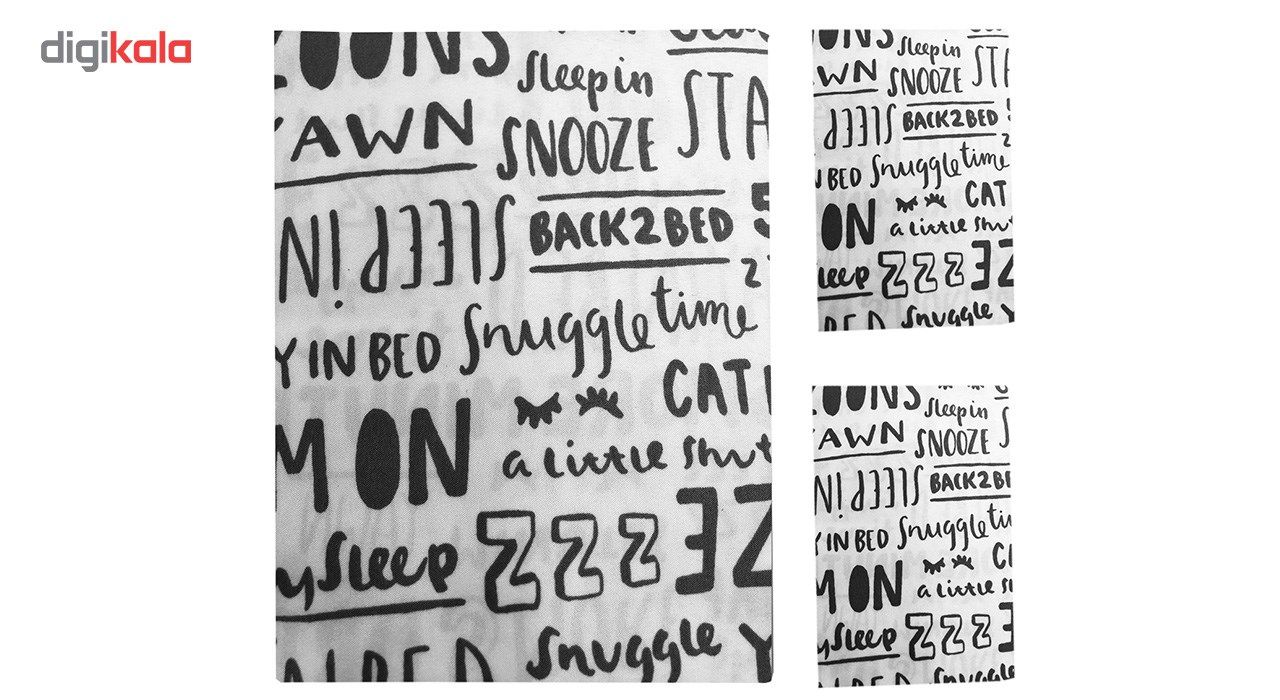 digikala
OONS
Sleep in
AWN
SNOOZE
STA
SLEEP IN
BACK2BED
Y IN BED
Snuggle time
M ON
CAT
a little shut
Sleep
ZZZ
Snuggle
OONS
Sleep in
AWN
SNOOZE
ST
SLEEP
BACK2BED
BED
Snuggle time
CAT
ON
a little shut
sleep
ZZZ
Snuggle
OONS
Sleep in
AWN
SNOOZE
SLEEP IN
BACK2BE
Y IN BED
Snuggle ti
M ON
a little s
Sleep
ZZZ